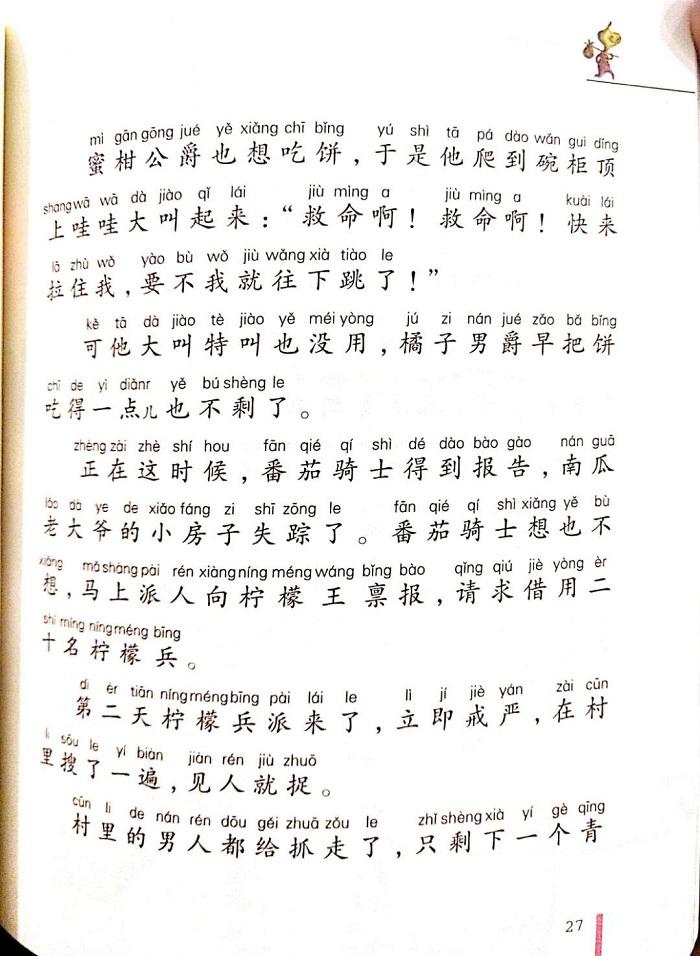 mì gān gōng jué yě xiǎng chī bǐng yú shì tā pá dào wǎn guì dǐng
蜜柑公爵也想吃饼，于是他爬到碗柜顶
shang wā wā dà jiào qǐ lái jiù mìng a jiù mìng a kuài lái
上哇哇大叫起来：“救命啊！救命啊！快来
lā zhù wǒ yào bù wǒ jiù wǎng xià tiào le
拉住我，要不我就往下跳了！”
kě tā dà jiào tè jiào yě méi yòng jú zi nán jué zǎo bǎ bǐng
可他大叫特叫也没用，橘子男爵早把饼
chī de yì diǎnr yě bú shèng le
吃得一点儿也不剩了。
zhèng zài zhè shí hou fān qié qí shì dé dào bào gào nán guā
正在这时候，番茄骑士得到报告，南瓜
lǎo dà ye de xiǎo fáng zi shī zōng le fān qié qí shì xiǎng yě bù
老大爷的小房子失踪了。番茄骑士想也不
xiǎng mǎ shàng pài rén xiàng níng méng wáng bǐng bào qǐng qiú jiè yòng èr
想，马上派人向柠檬王禀报，请求借用二
shí míng níng méng bīng
十名柠檬兵。
dì èr tiān níng méng bīng pài lái le lì jí jiè yán zài cūn
第二天柠檬兵派来了，立即戒严，在村
li sōu le yí biàn jiàn rén jiù zhuō
里搜了一遍，见人就捉。
cūn li de nán rén dōu gěi zhuā zǒu le zhǐ shèng xià yí gè qīng
村里的男人都给抓走了，只剩下一个青
27